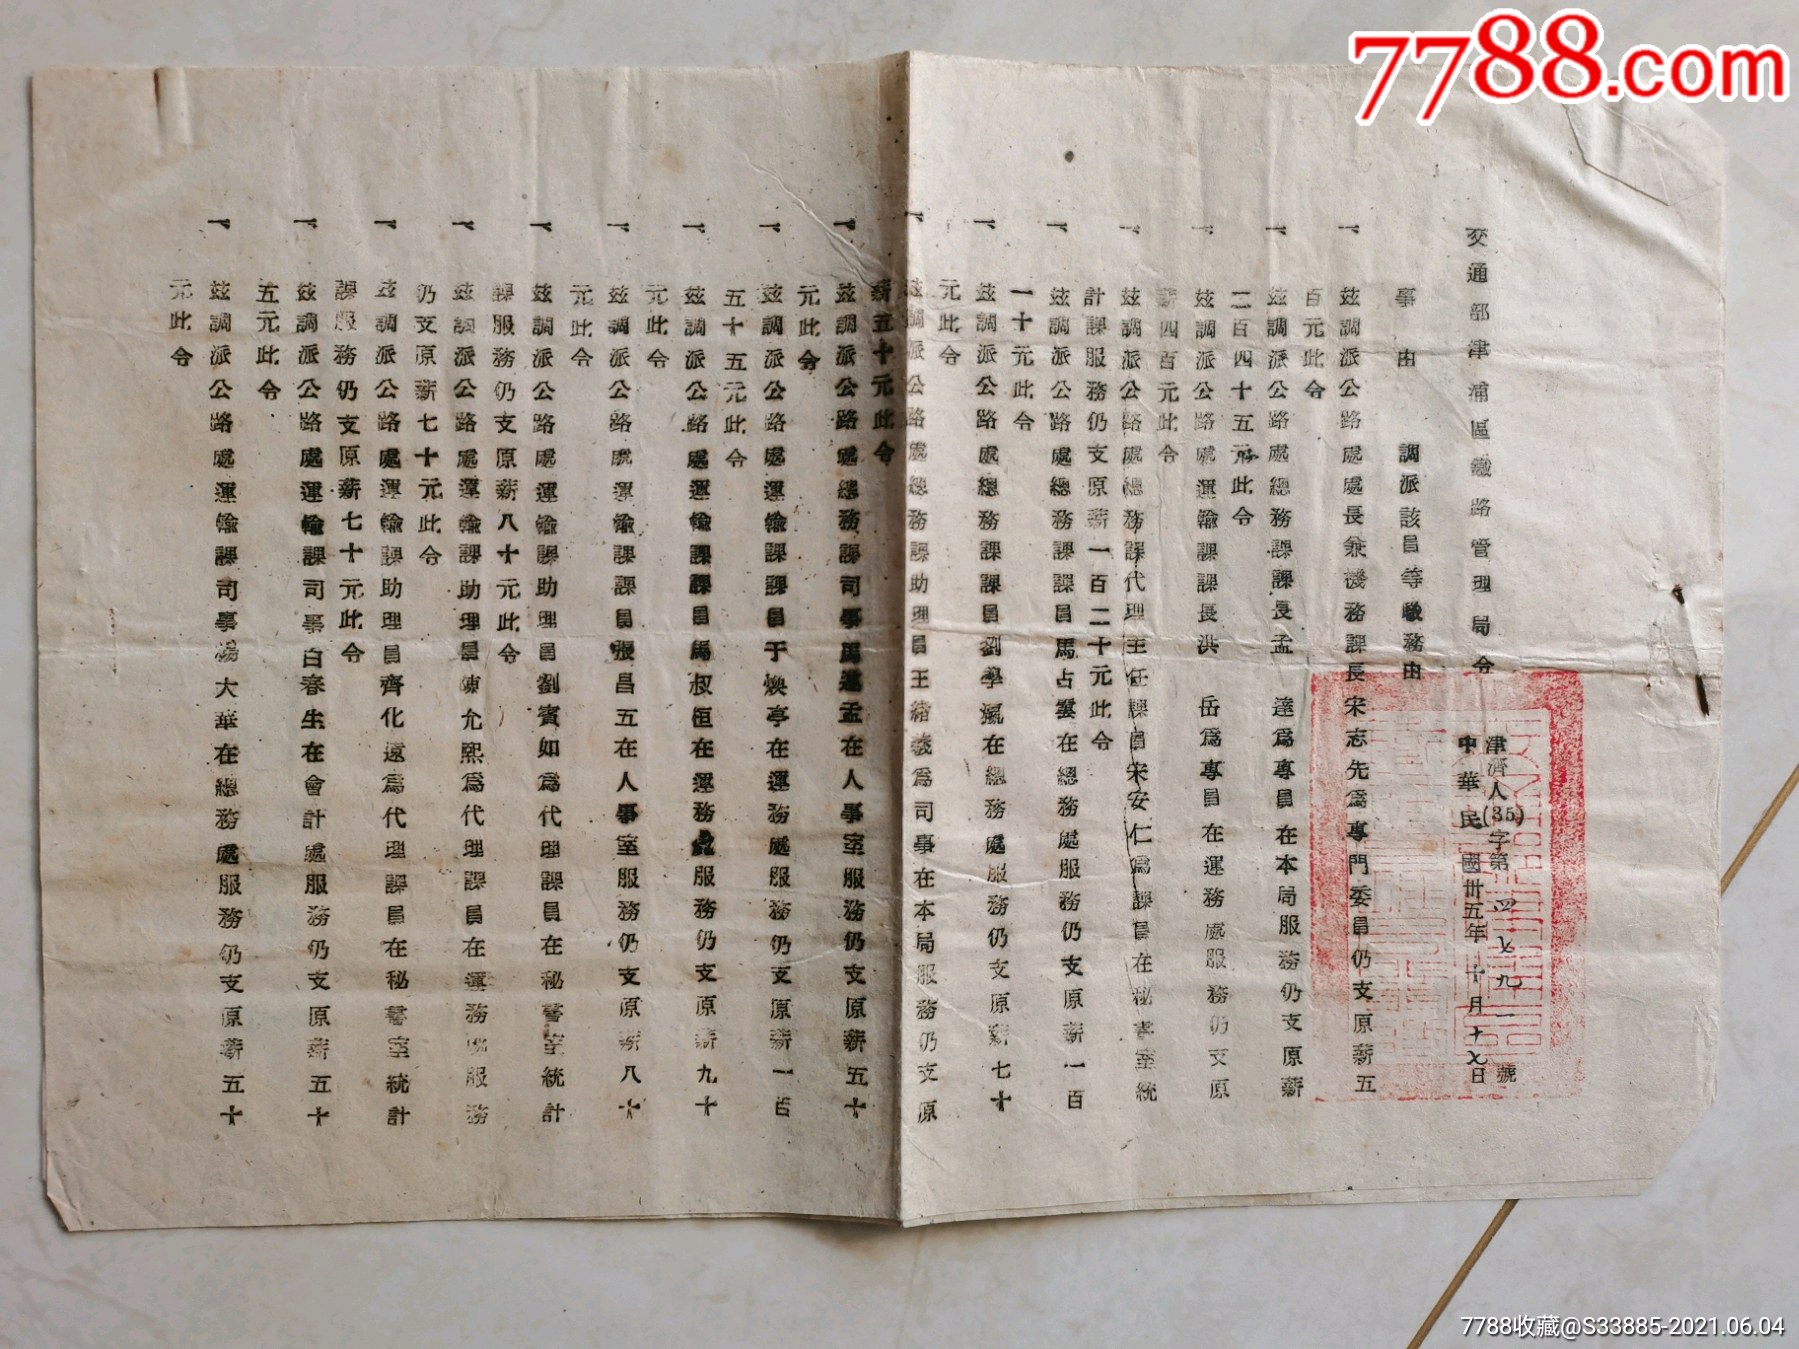 交通部津浦區鐵路管理局令
津濟人(35)字第四七九一號
中華民國卅五年十月十七日
事由 調派該員等職務由
一 茲調派公路處處長兼機務課長宋志先為專門委員仍支原薪五
百元此令
一 茲調派公路處總務課課長孟達為專員在本局服務仍支原薪
二百四十五元此令
一 茲調派公路處運輸課課長洪岳為專員在運務處服務仍支原
薪四百元此令
一 茲調派公路處總務課代理主任課員宋安仁為課員在秘書室統
計課服務仍支原薪一百二十元此令
一 茲調派公路處總務課課員馬占雲在總務處服務仍支原薪一百
一十元此令
一 茲調派公路處總務課課員劉學瀛在總務處服務仍支原薪七十
元此令
一 茲調派公路處總務課助理員王緒義為司事在本局服務仍支原
薪五十元此令
一 茲調派公路處總務課司事馬蓮孟在人事室服務仍支原薪五十
元此令
一 茲調派公路處運輸課課員于煥亭在運務處服務仍支原薪一百
五十五元此令
一 茲調派公路處運輸課課員馬叔恒在運務處服務仍支原薪九十
元此令
一 茲調派公路處運輸課課員張昌五在人事室服務仍支原薪八十
元此令
一 茲調派公路處運輸課助理員劉賓如為代理課員在秘書室統計
課服務仍支原薪八十元此令
一 茲調派公路處運輸課助理員陳允熙為代理課員在運務處服務
仍支原薪七十元此令
一 茲調派公路處運輸課助理員齊化遠為代理課員在秘書室統計
課服務仍支原薪七十元此令
一 茲調派公路處運輸課司事白春生在會計處服務仍支原薪五十
五元此令
一 茲調派公路處運輸課司事楊大華在總務處服務仍支原薪五十
元此令
7788.com
7788收藏@S33885-2021.06.04